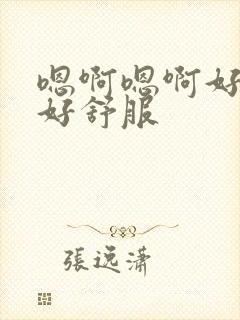 嗯啊嗯啊好
好舒服
張逸瀟